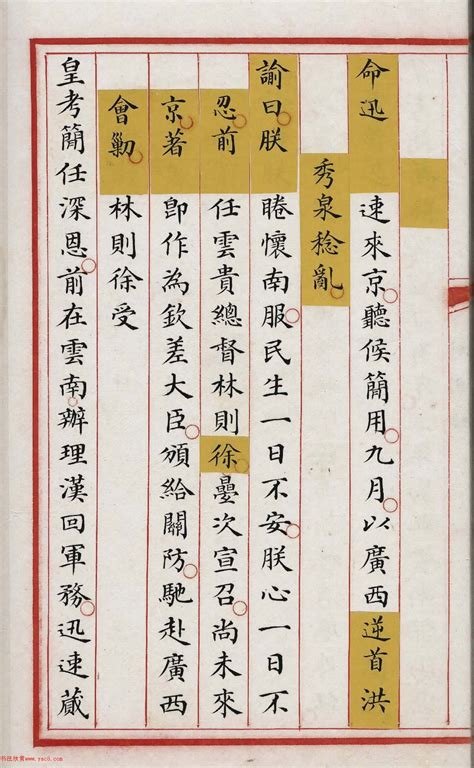 命迅速來京聽候簡用九月以廣西逆首洪
秀泉稔亂
諭曰朕睠懷南服民生一日不安朕心一日不
忍前任雲貴總督林則徐疊次宣召尚未來
京著即作為欽差大臣頒給關防馳赴廣西
會勦林則徐受
皇考簡任深恩前在雲南辦理漢回軍務迅速蕆
书法欣赏www.yac8.com